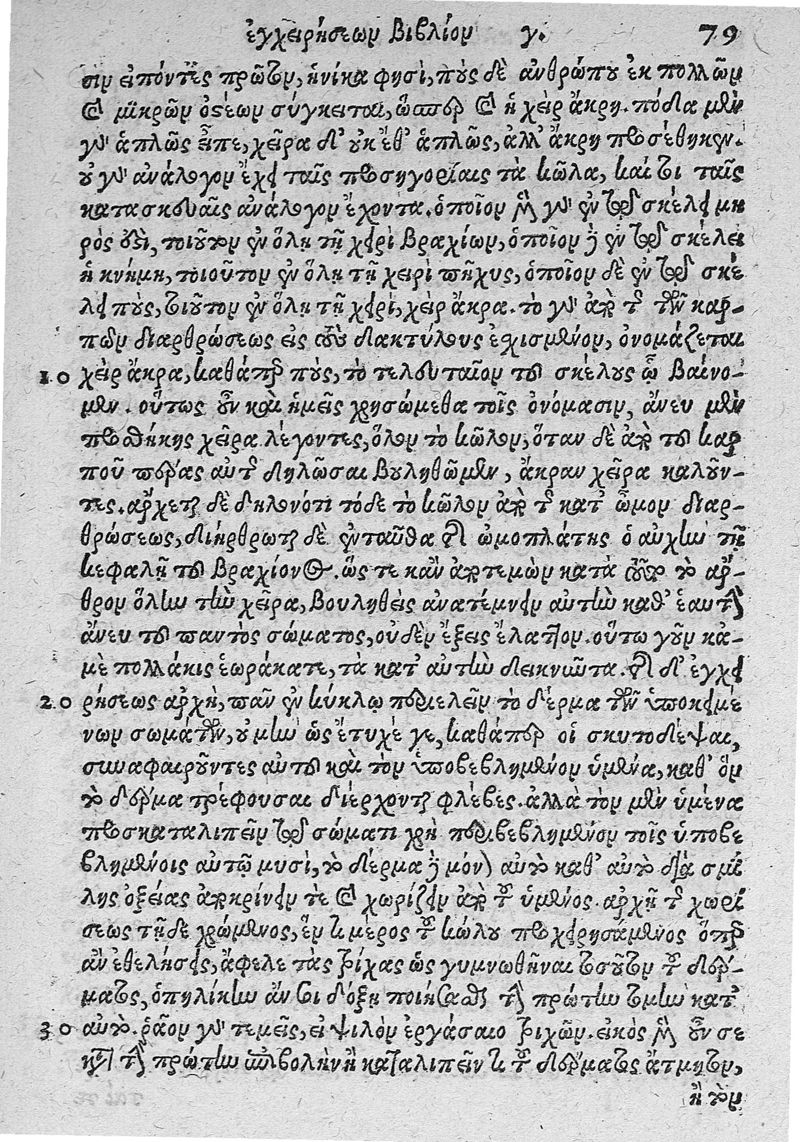 ἐγχειρήσεων Βιβλίον γ. 79
σιν εἰπόντες πρῶτον, ἡνίκα φησὶ, πὺς δὲ ἀνθρώπου ἐκ πολλῶν
καὶ μικρῶν ὀστέων σύγκειται, ὥσπερ καὶ ἡ χεὶρ ἄκρη. πόδα μὲν
γὰρ ἁπλῶς εἶπε, χεῖρα δ' οὐκ ἔθ' ἁπλῶς, ἀλλ' ἄκρη προσέθηκεν.
οὐ γὰρ ἀνάλογον ἔχει ταῖς προσηγορίαις τὰ κῶλα, καίτοι ταῖς
κατασκευαῖς ἀνάλογον ἔχοντα. ὁποῖον μὲν γὰρ ἐν τῷ σκέλει μη
ρός ἐστι, τοιοῦτον ἐν ὅλῃ τῇ χειρὶ βραχίων, ὁποῖον δὲ ἐν τῷ σκέλει
ἡ κνήμη, τοιοῦτον ἐν ὅλῃ τῇ χειρὶ πῆχυς, ὁποῖον δὲ ἐν τῷ σκέ
λει πὺς, τοιοῦτον ἐν ὅλῃ τῇ χειρὶ, χεὶρ ἄκρα. τὸ γὰρ ἀπὸ τῆς τῶν καρ-
πῶν διαρθρώσεως εἰς τοὺς δακτύλους ἐσχισμένον, ὀνομάζεται
10 χεὶρ ἄκρα, καθάπερ πὺς, τὸ τελευταῖον τοῦ σκέλους ᾧ βαίνο-
μεν. οὕτως οὖν καὶ ἡμεῖς χρησώμεθα τοῖς ὀνόμασιν, ἄνευ μὲν
προσθήκης χεῖρα λέγοντες, ὅλον τὸ κῶλον, ὅταν δὲ ἀπὸ τοῦ καρ
ποῦ πέρας αὐτῆς δηλῶσαι βουληθῶμεν, ἄκραν χεῖρα καλοῦν-
τες. ἄρχεται δὲ δηλονότι τόδε τὸ κῶλον ἀπὸ τῆς κατ' ὦμον διαρ-
θρώσεως, διήρθρωται δὲ ἐνταῦθα τῆς ὠμοπλάτης ὁ αὐχὴν τῇ
κεφαλῇ τοῦ βραχίονος. ὥς τε κἂν ἀποτεμὼν κατὰ τοῦτο τὸ ἄρ-
θρον ὅλην τὴν χεῖρα, βουληθεὶς ἀνατέμνειν αὐτὴν καθ' ἑαυτὴν
ἄνευ τοῦ παντὸς σώματος, οὐδὲν ἕξεις ἔλαττον. οὕτω γοῦν κἀ-
μὲ πολλάκις ἑωράκατε, τὰ κατ' αὐτὴν δεικνῶντα. τῆς δ' ἐγχει
20 ρήσεως ἀρχὴ, πᾶν ἐν κύκλῳ περιελεῖν τὸ δέρμα τῶν ὑποκειμέ
νων σωμάτων, οὐ μὴν ὡς ἔτυχέ γε, καθάπερ οἱ σκυτοδέψαι,
συναφαιροῦντες αὐτοῦ καὶ τὸν ὑποβεβλημένον ὑμένα, καθ' ὃν
τὸ δέρμα τρέφουσαι διέρχονται φλέβες. ἀλλὰ τὸν μὲν ὑμένα
προσκαταλιπεῖν τῷ σώματι χρὴ περιβεβλημένον τοῖς ὑποβε
βλημένοις αὐτῷ μυσὶ, τὸ δέρμα δὲ μόνον αὐτὸ καθ' αὑτὸ διὰ σμί
λης ὀξείας ἀποκρίνειν τε καὶ χωρίζειν ἀπὸ τοῦ ὑμένος. ἀρχῇ τῆς χωρί
σεως τῇδε χρώμενος, ἕν τι μέρος τοῦ κώλου προχειρησάμενος ὅπερ
ἂν ἐθελήσεις, ἄφελε τὰς τρίχας ὡς γυμνωθῆναι τοσοῦτον τοῦ δέρ-
ματος, ὁπηλίκην ἄν σοι δόξῃ ποιήσασθαι τὴν πρώτην τομὴν κατ'
30 αὐτό. ῥᾷον γὰρ τεμεῖς, εἰ ψιλὸν ἐργάσαιο τριχῶν. εἰκὸς μὲν οὖν σε
κατὰ τὴν πρώτην ἐπιβολὴν ἢ καταλιπεῖν τι τοῦ δέρματος ἄτμητον,
ἢ τὸν